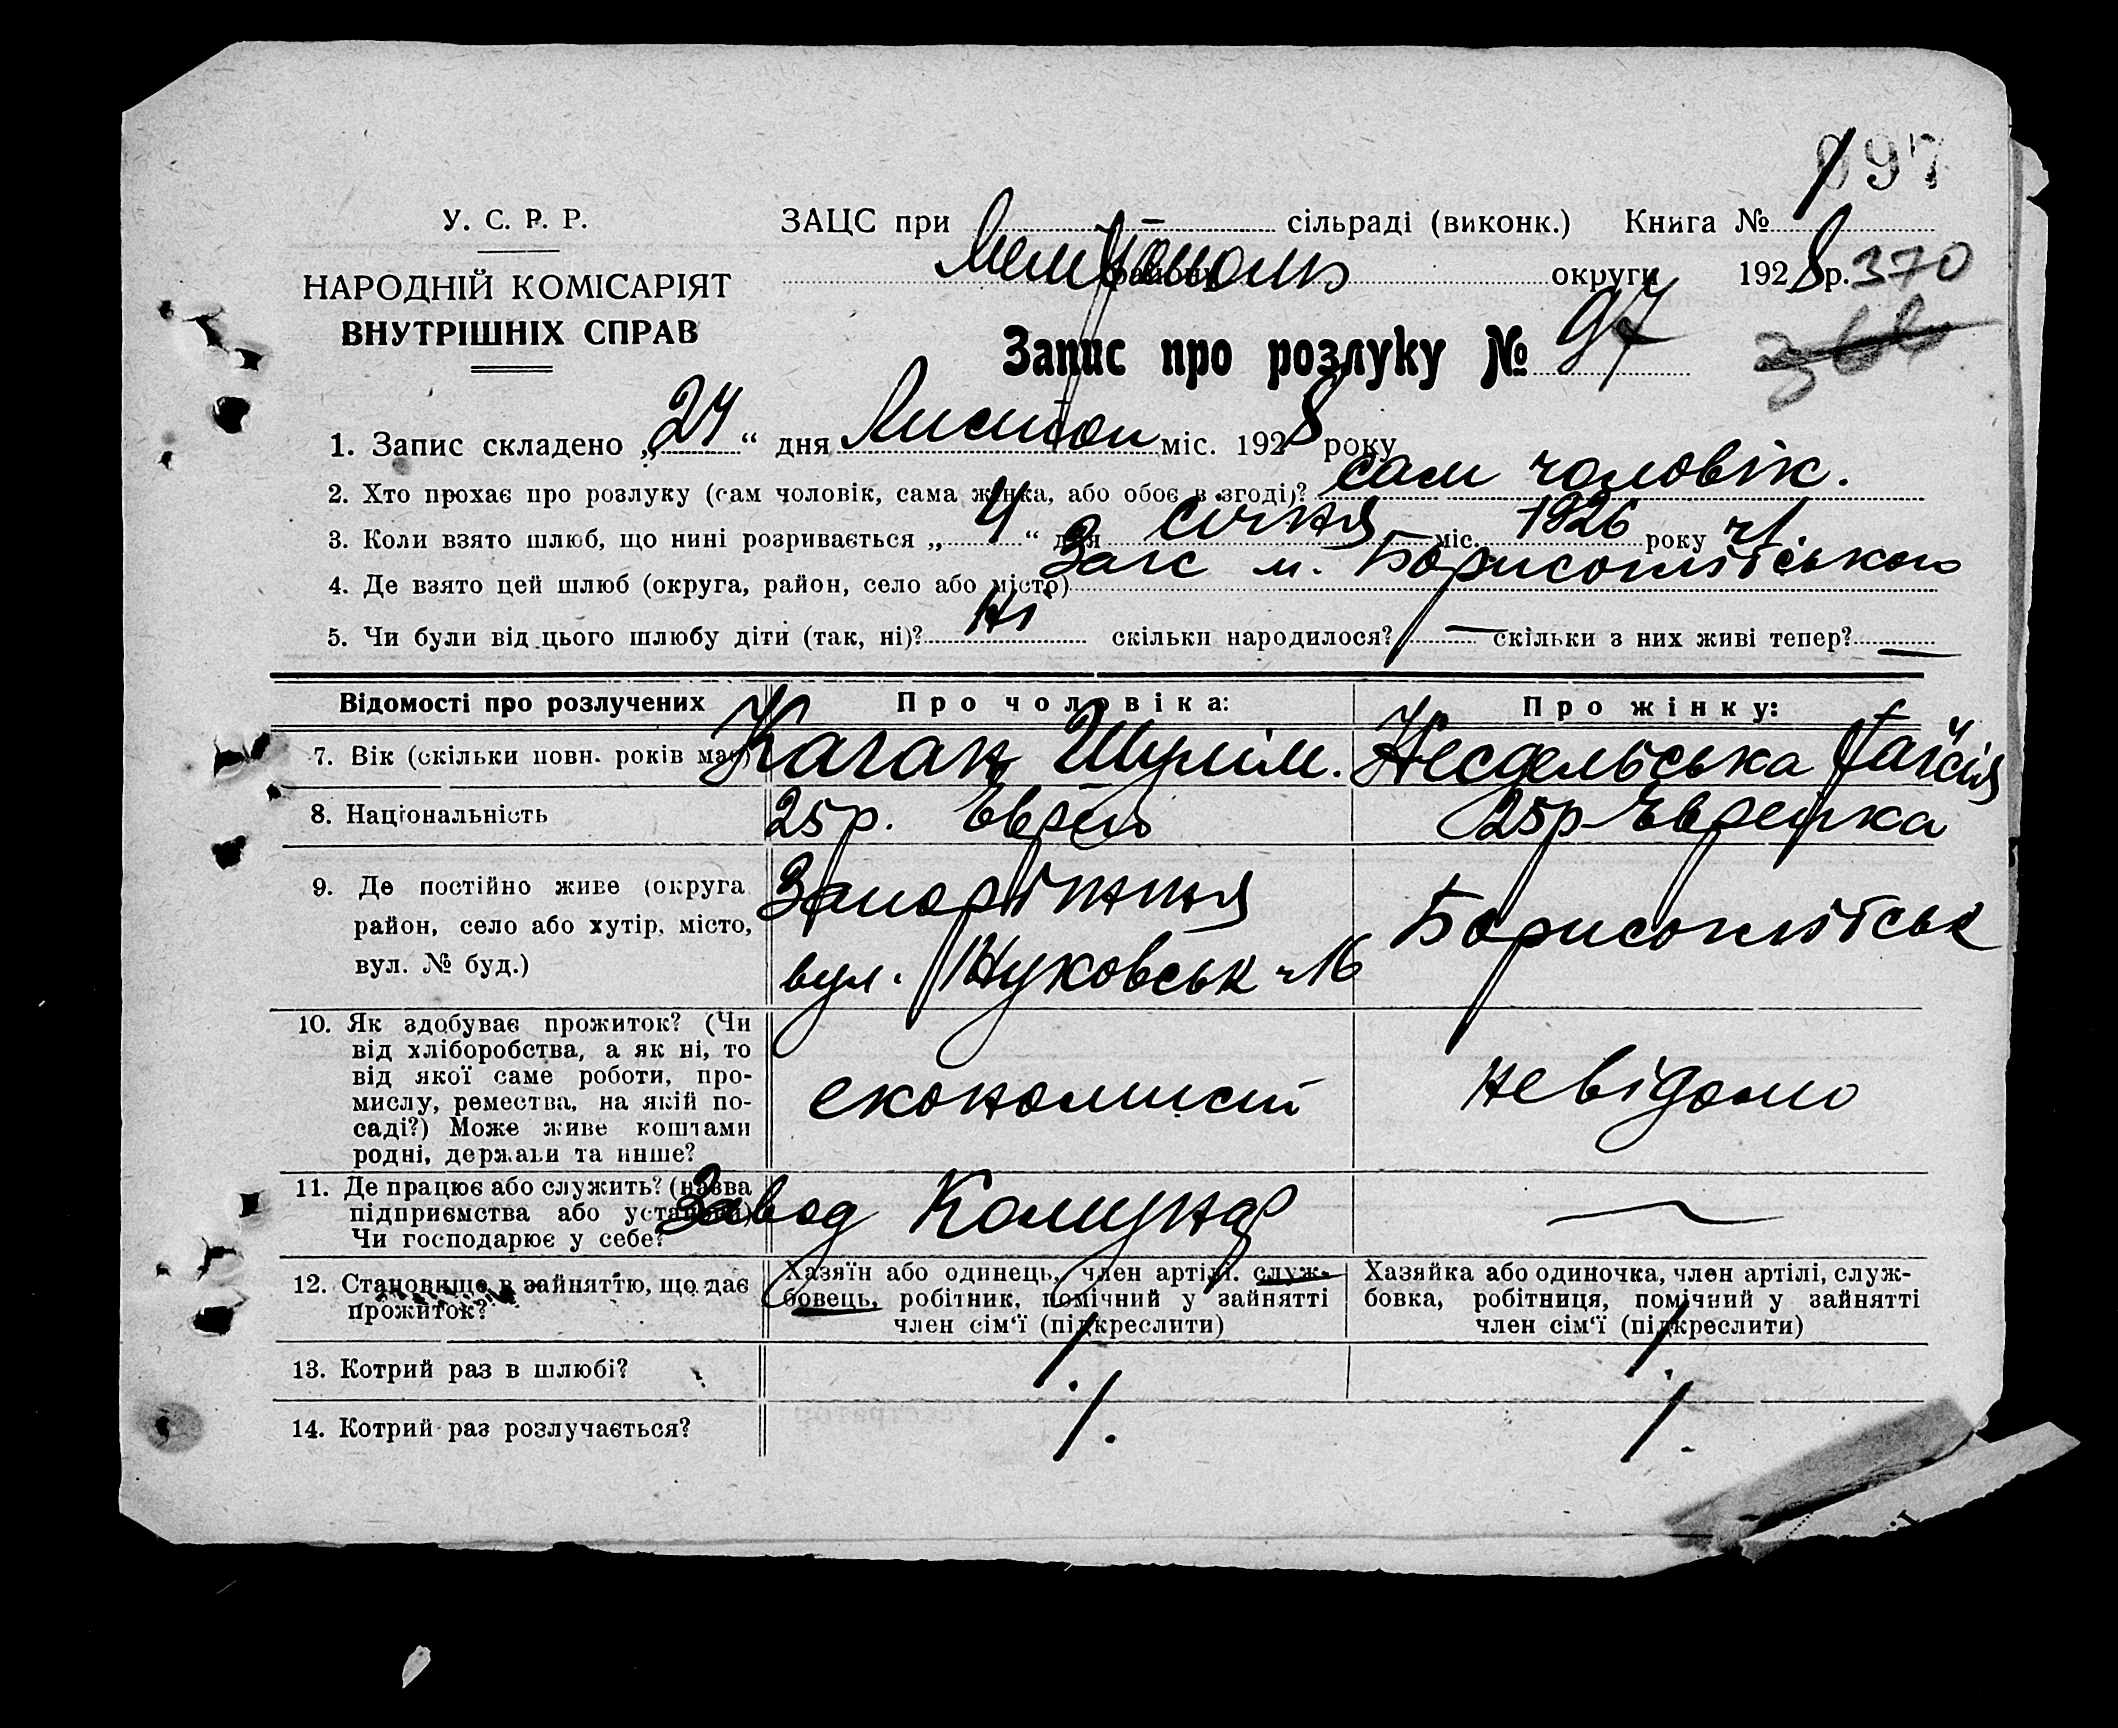 897
У. С. Р. Р.
НАРОДНІЙ КОМІСАРІЯТ
ВНУТРІШНІХ СПРАВ
ЗАЦС при сільраді (виконк.) Книга №
Мелітополь району округи 1928 р. 370
Запис про розлуку № 97
366
1. Запис складено „24“ дня Листоп міс. 1928 року
2. Хто прохає про розлуку (сам чоловік, сама жінка, або обоє в згоді)? сам чоловік.
3. Коли взято шлюб, що нині розривається „4“ дня січня міс. 1926 року
4. Де взято цей шлюб (округа, район, село або місто) Загс м. Борисоглібського
5. Чи були від цього шлюбу діти (так, ні)? ні скільки народилося? — скільки з них живі тепер? —
Відомості про розлучених Про чоловіка: Про жінку:
7. Вік (скільки повн. років має) Каган Шулім. Несдельська
8. Національність 25 р. Еврей 25 р Еврейка
9. Де постійно живе (округа Запоріжжя Борисоглібськ
район, село або хутір, місто,
вул. № буд.) вул. Жуковськ 16
10. Як здобуває прожиток? (Чи
від хліборобства, а як ні, то
від якої саме роботи, про-
мислу, ремества, на якій по-
саді?) Може живе коштами
родні, держави та инше?
економист невідомо
11. Де працює або служить? (назва
підприємства або установи)
Чи господарює у себе?
Завод Комунар —
12. Становище в зайняттю, що дає
прожиток?
Хазяїн або одинець, член артілі, служ-
бовець, робітник, помічний у зайнятті
член сім‘ї (підкреслити)
Хазяйка або одиночка, член артілі, служ-
бовка, робітниця, помічний у зайнятті
член сім‘ї (підкреслити)
13. Котрий раз в шлюбі? 1. 1.
14. Котрий раз розлучається? 1. 1.